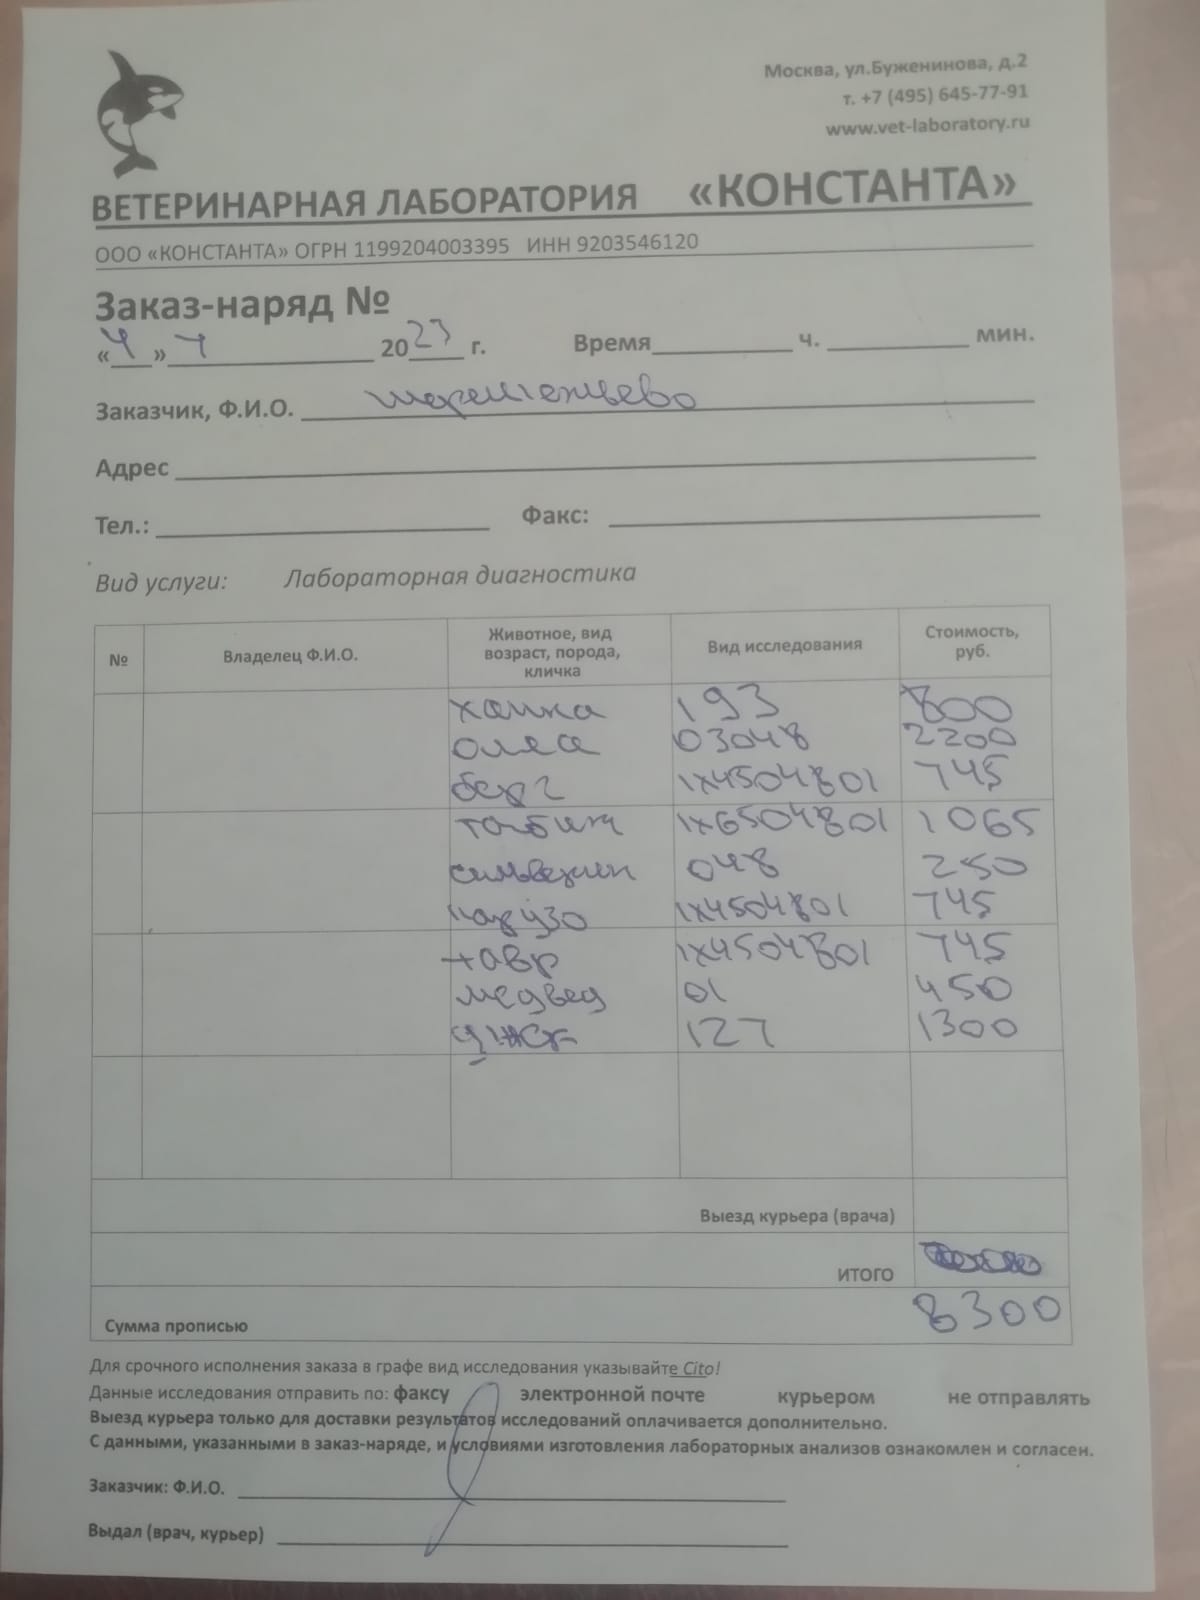 Москва, ул.Буженинова, д.2
т. +7 (495) 645-77-91
www.vet-laboratory.ru
ВЕТЕРИНАРНАЯ ЛАБОРАТОРИЯ «КОНСТАНТА»
ООО «КОНСТАНТА» ОГРН 1199204003395 ИНН 9203546120
Заказ-наряд №
«4» 7 2023 г. Время ч. мин.
Заказчик, Ф.И.О. шереметьево
Адрес
Тел.: Факс:
Вид услуги: Лабораторная диагностика
№ Владелец Ф.И.О. Животное, вид возраст, порода, кличка Вид исследования Стоимость, руб.
193 800
03048 2200
берг 1х4504801 745
1х6504801 1065
048 250
карузо 1х4504801 745
тавр 1х4504801 745
медвед 01 450
127 1300
Выезд курьера (врача)
ИТОГО
Сумма прописью 8300
Для срочного исполнения заказа в графе вид исследования указывайте Cito!
Данные исследования отправить по: факсу электронной почте курьером не отправлять
Выезд курьера только для доставки результатов исследований оплачивается дополнительно.
С данными, указанными в заказ-наряде, и условиями изготовления лабораторных анализов ознакомлен и согласен.
Заказчик: Ф.И.О.
Выдал (врач, курьер)